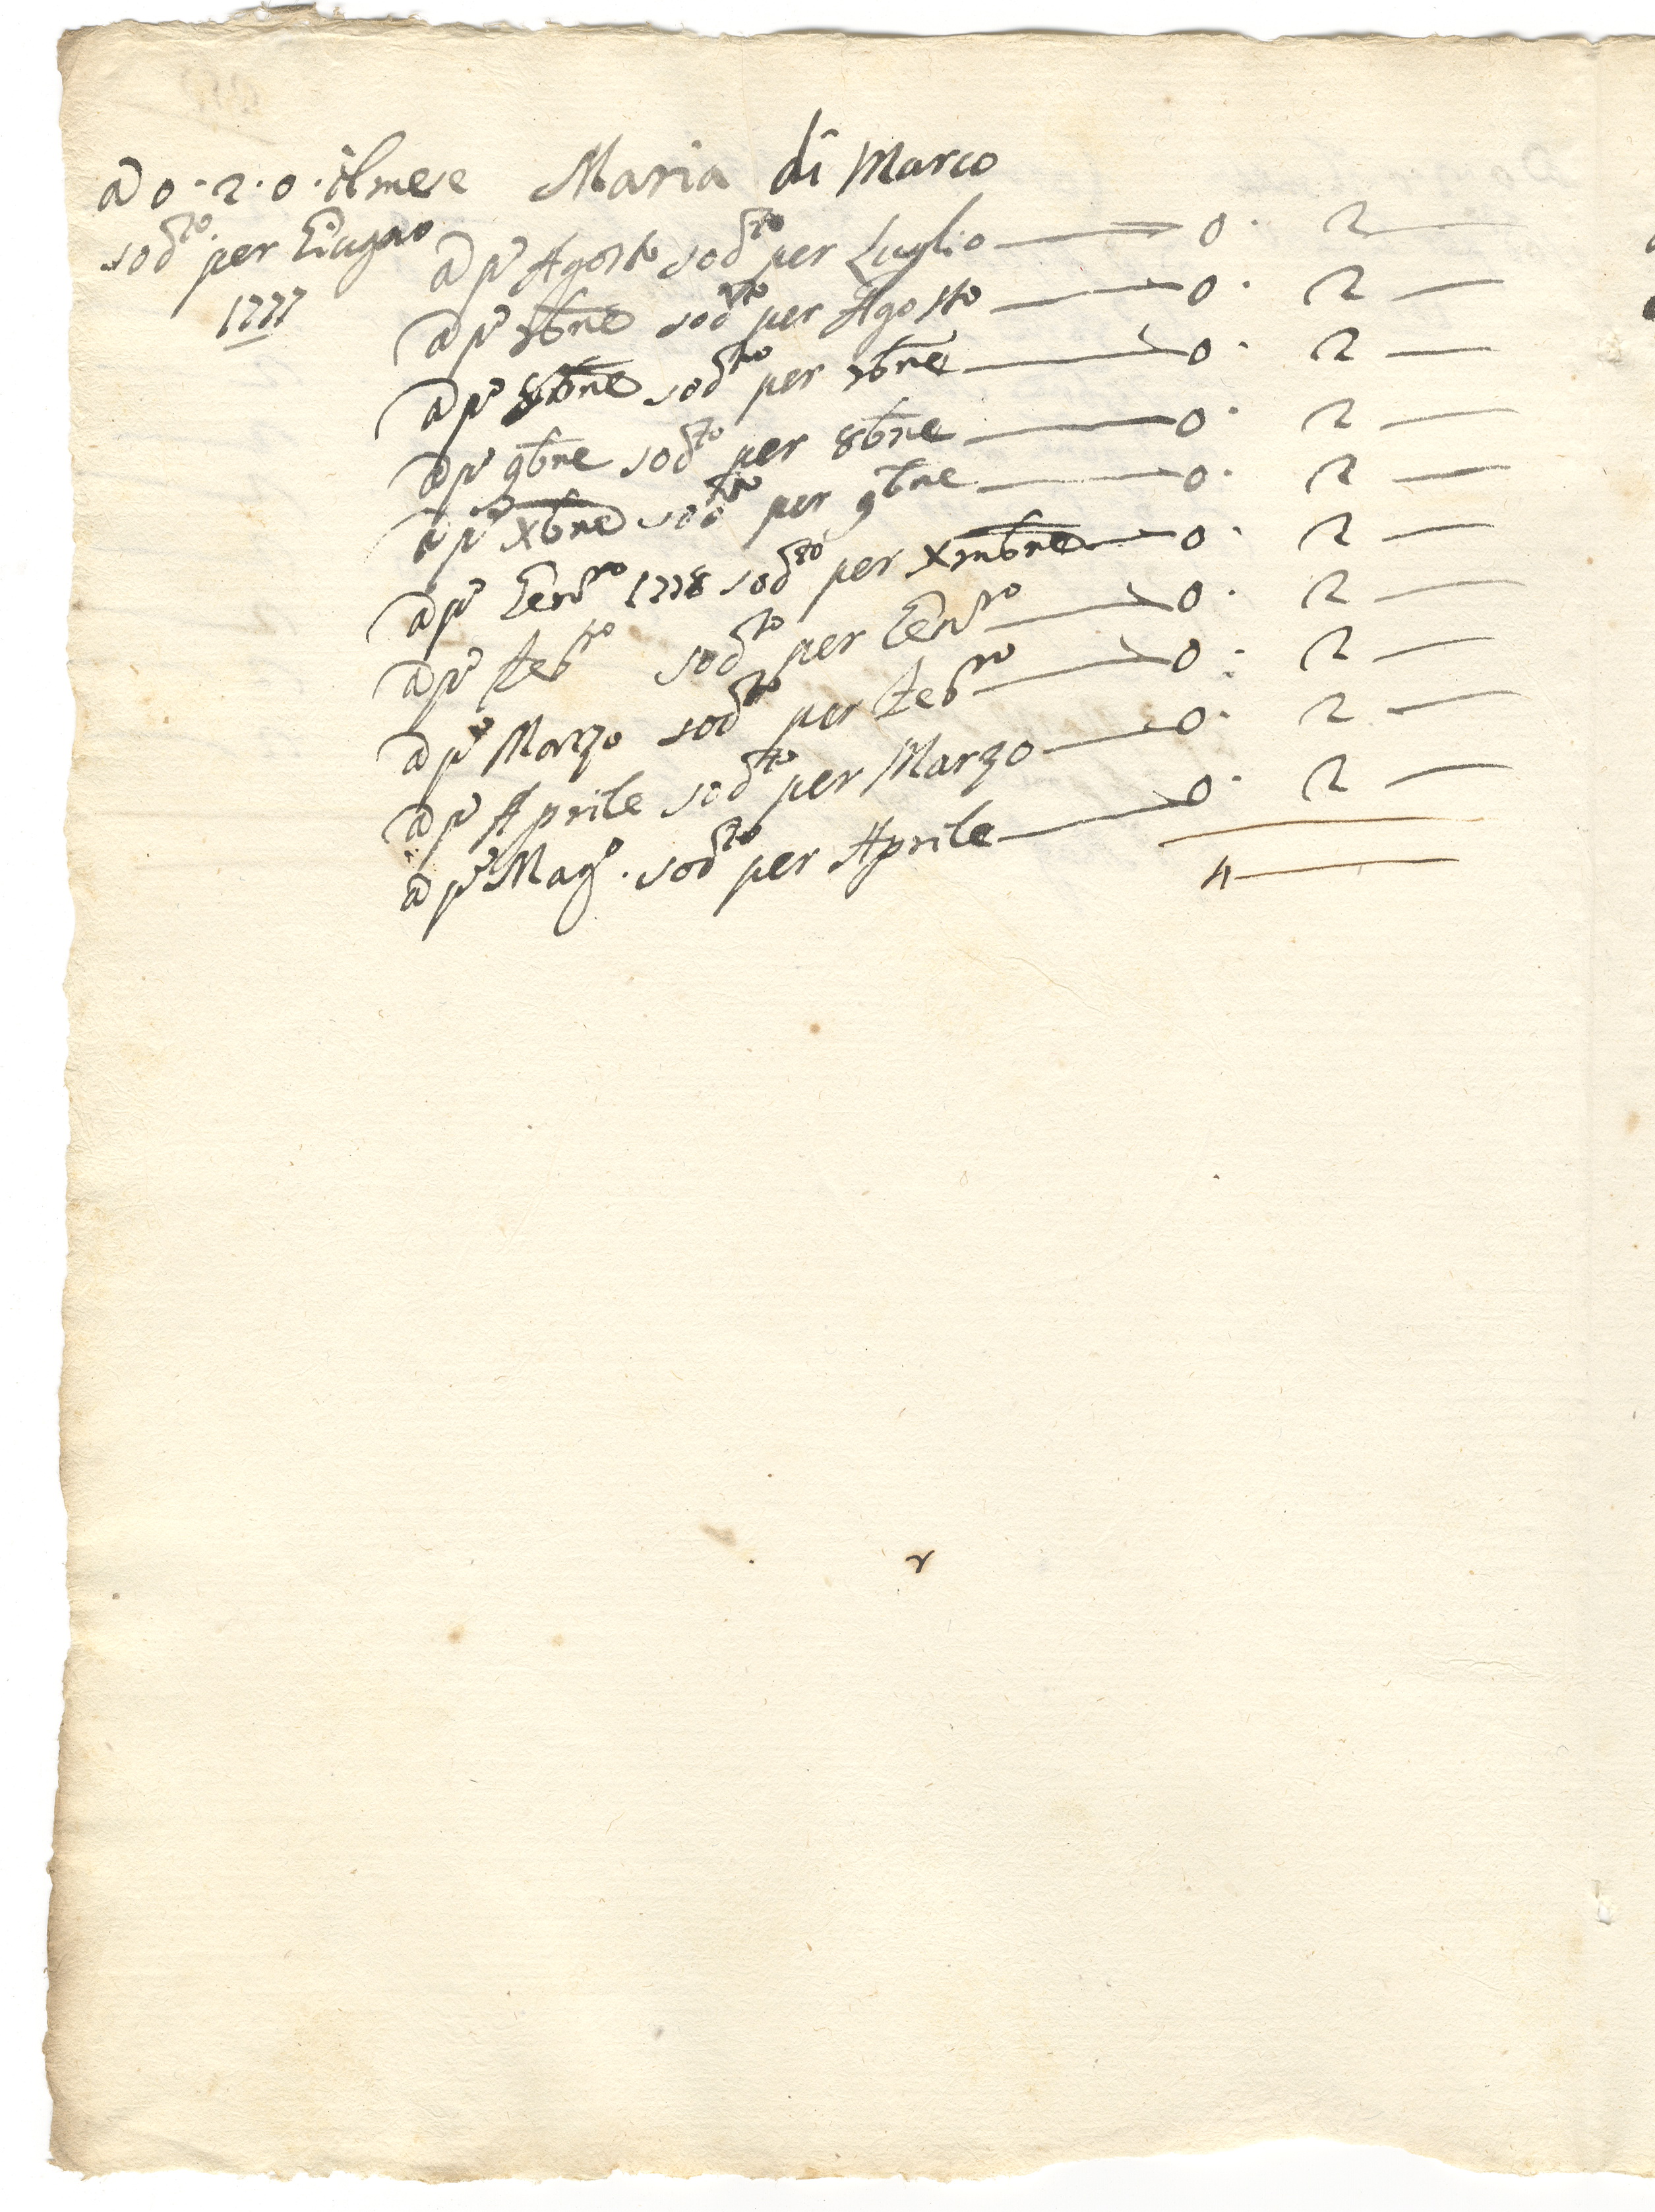 a 0·2·0· il mese Maria di Marco
sodto per Giugno
1777
a po Agosto sodto per Luglio 0· 2
a po 7bne sodto per Agosto 0· 2
a po 8bne sodto per 7bne 0· 2
a po 9bne sodto per 8bne 0· 2
a po Xbne sodto per 9bne 0· 2
a po Genro 1778 sodto per Xmbne 0· 2
a po Febro sodto per Genro 0· 2
a po Marzo sodto per Febro 0: 2
a po Aprile sodto per Marzo 0· 2
a po Mago. sodto per Aprile 0· 2
4